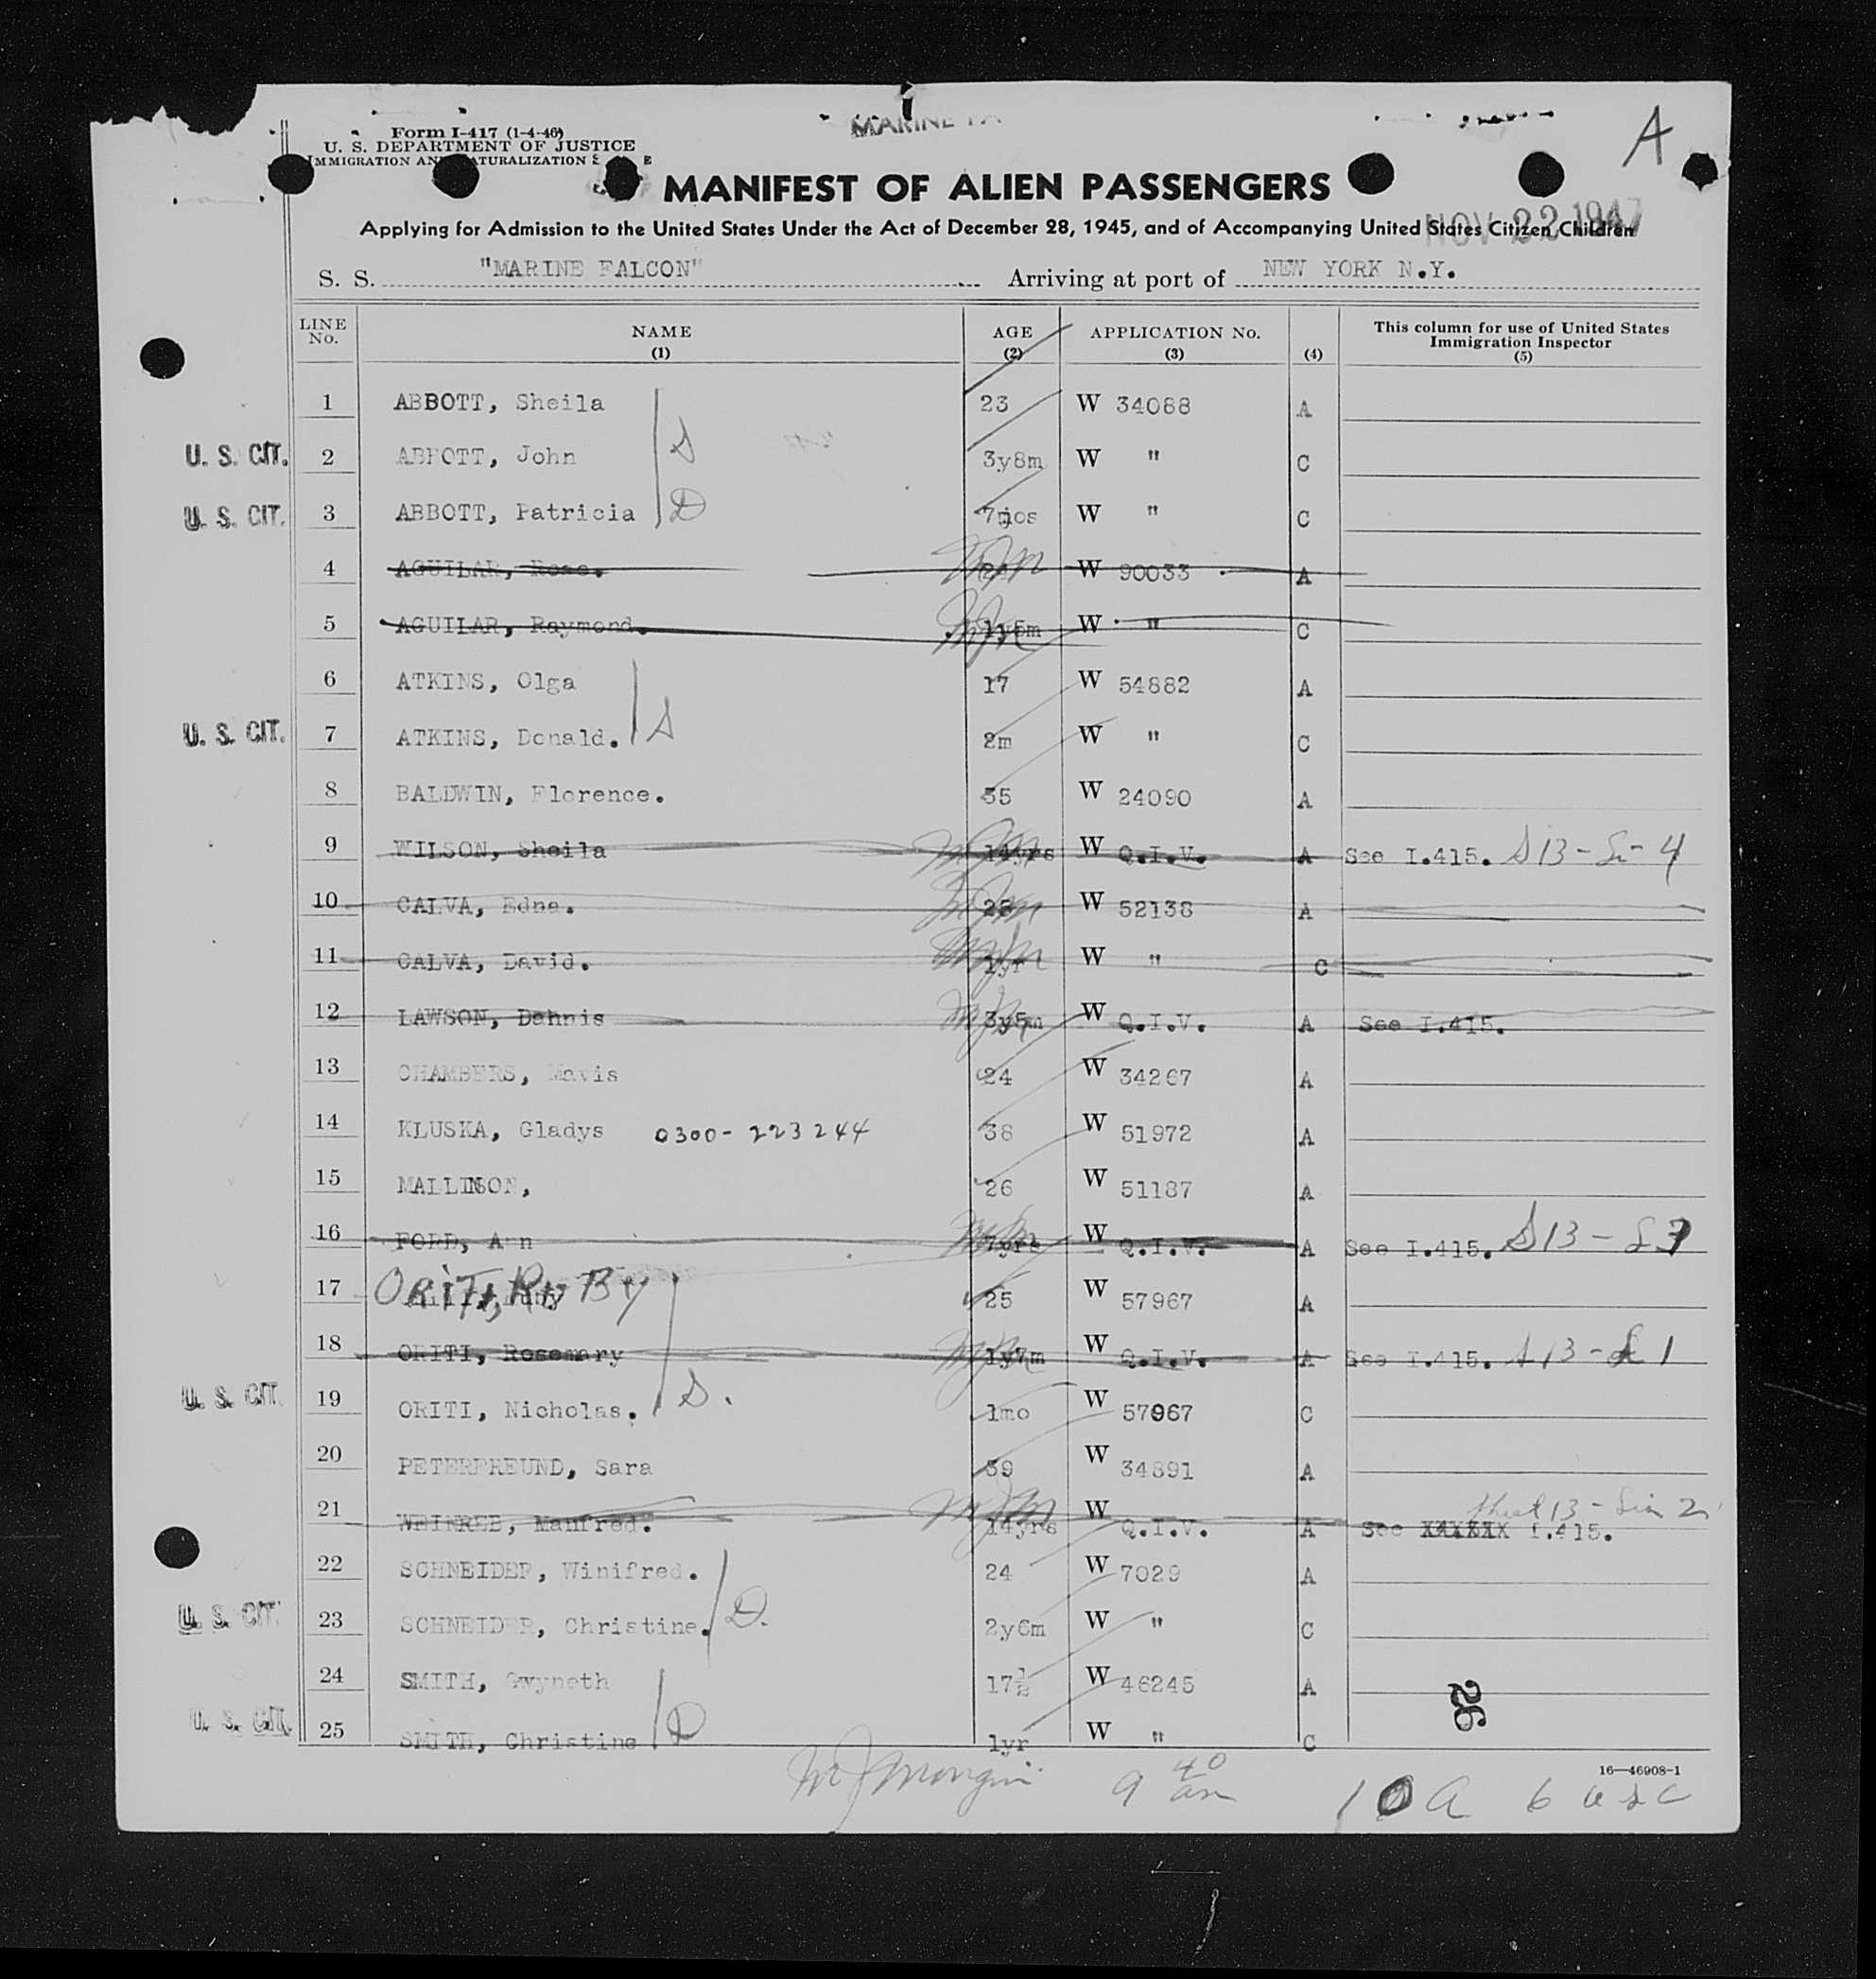 MARINE FA
A
Form I-417 (1-4-46)
U. S. DEPARTMENT OF JUSTICE
IMMIGRATION AND NATURALIZATION
MANIFEST OF ALIEN PASSENGERS
NOV 22 1947
Applying for Admission to the United States Under the Act of December 28, 1945, and of Accompanying United States Citizen Children
S. S. "MARINE FALCON" Arriving at port of NEW YORK N.Y.
LINE No. NAME (1) AGE (2) APPLICATION No. (3) (4) This column for use of United States Immigration Inspector (5)
1 ABBOTT, Sheila 23 W 34088 A
U. S. CIT. 2 ABBOTT, John S 3y8m W " C
U. S. CIT. 3 ABBOTT, Patricia D 7mos W " C
4 AGUILAR, Rose. W 90033 A
5 AGUILAR, Raymond. 1y5m W " C
6 ATKINS, Olga 17 W 54882 A
U. S. CIT. 7 ATKINS, Donald. S 2m W " C
8 BALDWIN, Florence. 35 W 24090 A
9 WILSON, Sheila 14yrs W Q.I.V. A See I.415. S13-Li-4
10 CALVA, Edna. 23 W 52138 A
11 CALVA, David. 1yr W " C
12 LAWSON, Dennis 3y5m W Q.I.V. A See I.415.
13 CHAMBERS, Mavis 24 W 34267 A
14 KLUSKA, Gladys 0300-223244 38 W 51972 A
15 MALLINSON, 26 W 51187 A
16 FORD, Ann 7yrs W Q.I.V. A See I.415. S13-L3
17 ORITI, RUBY 25 W 57967 A
18 ORITI, Rosemary 1y7m W Q.I.V. A See I.415. S13-L1
U. S. CIT. 19 ORITI, Nicholas. S. 1mo W 57967 C
20 PETERFREUND, Sara 39 W 34891 A
Sheet 13 - Line 2
21 WEINREB, Manfred. 14yrs W Q.I.V. A See I.415.
22 SCHNEIDER, Winifred. 24 W 7029 A
U. S. CIT. 23 SCHNEIDER, Christine. D. 2y6m W " C
24 SMITH, Gwyneth 17½ W 46245 A
26
U. S. CIT. 25 SMITH, Christine D 1yr W " C
16—46908-1
9 40 am 10A 6 USC